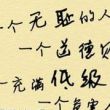 一个无耻的人
一个道德
一充满低级
一个有害